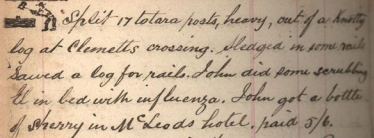 Split 17 totara posts, heavy, out of a Knotty
log at Clemetts crossing. Sledged in some rails
Sawed a log for rails. John did some scrubbing
in bed with influenza. John got a bottle
of sherry in McLeods hotel, paid 5/6.